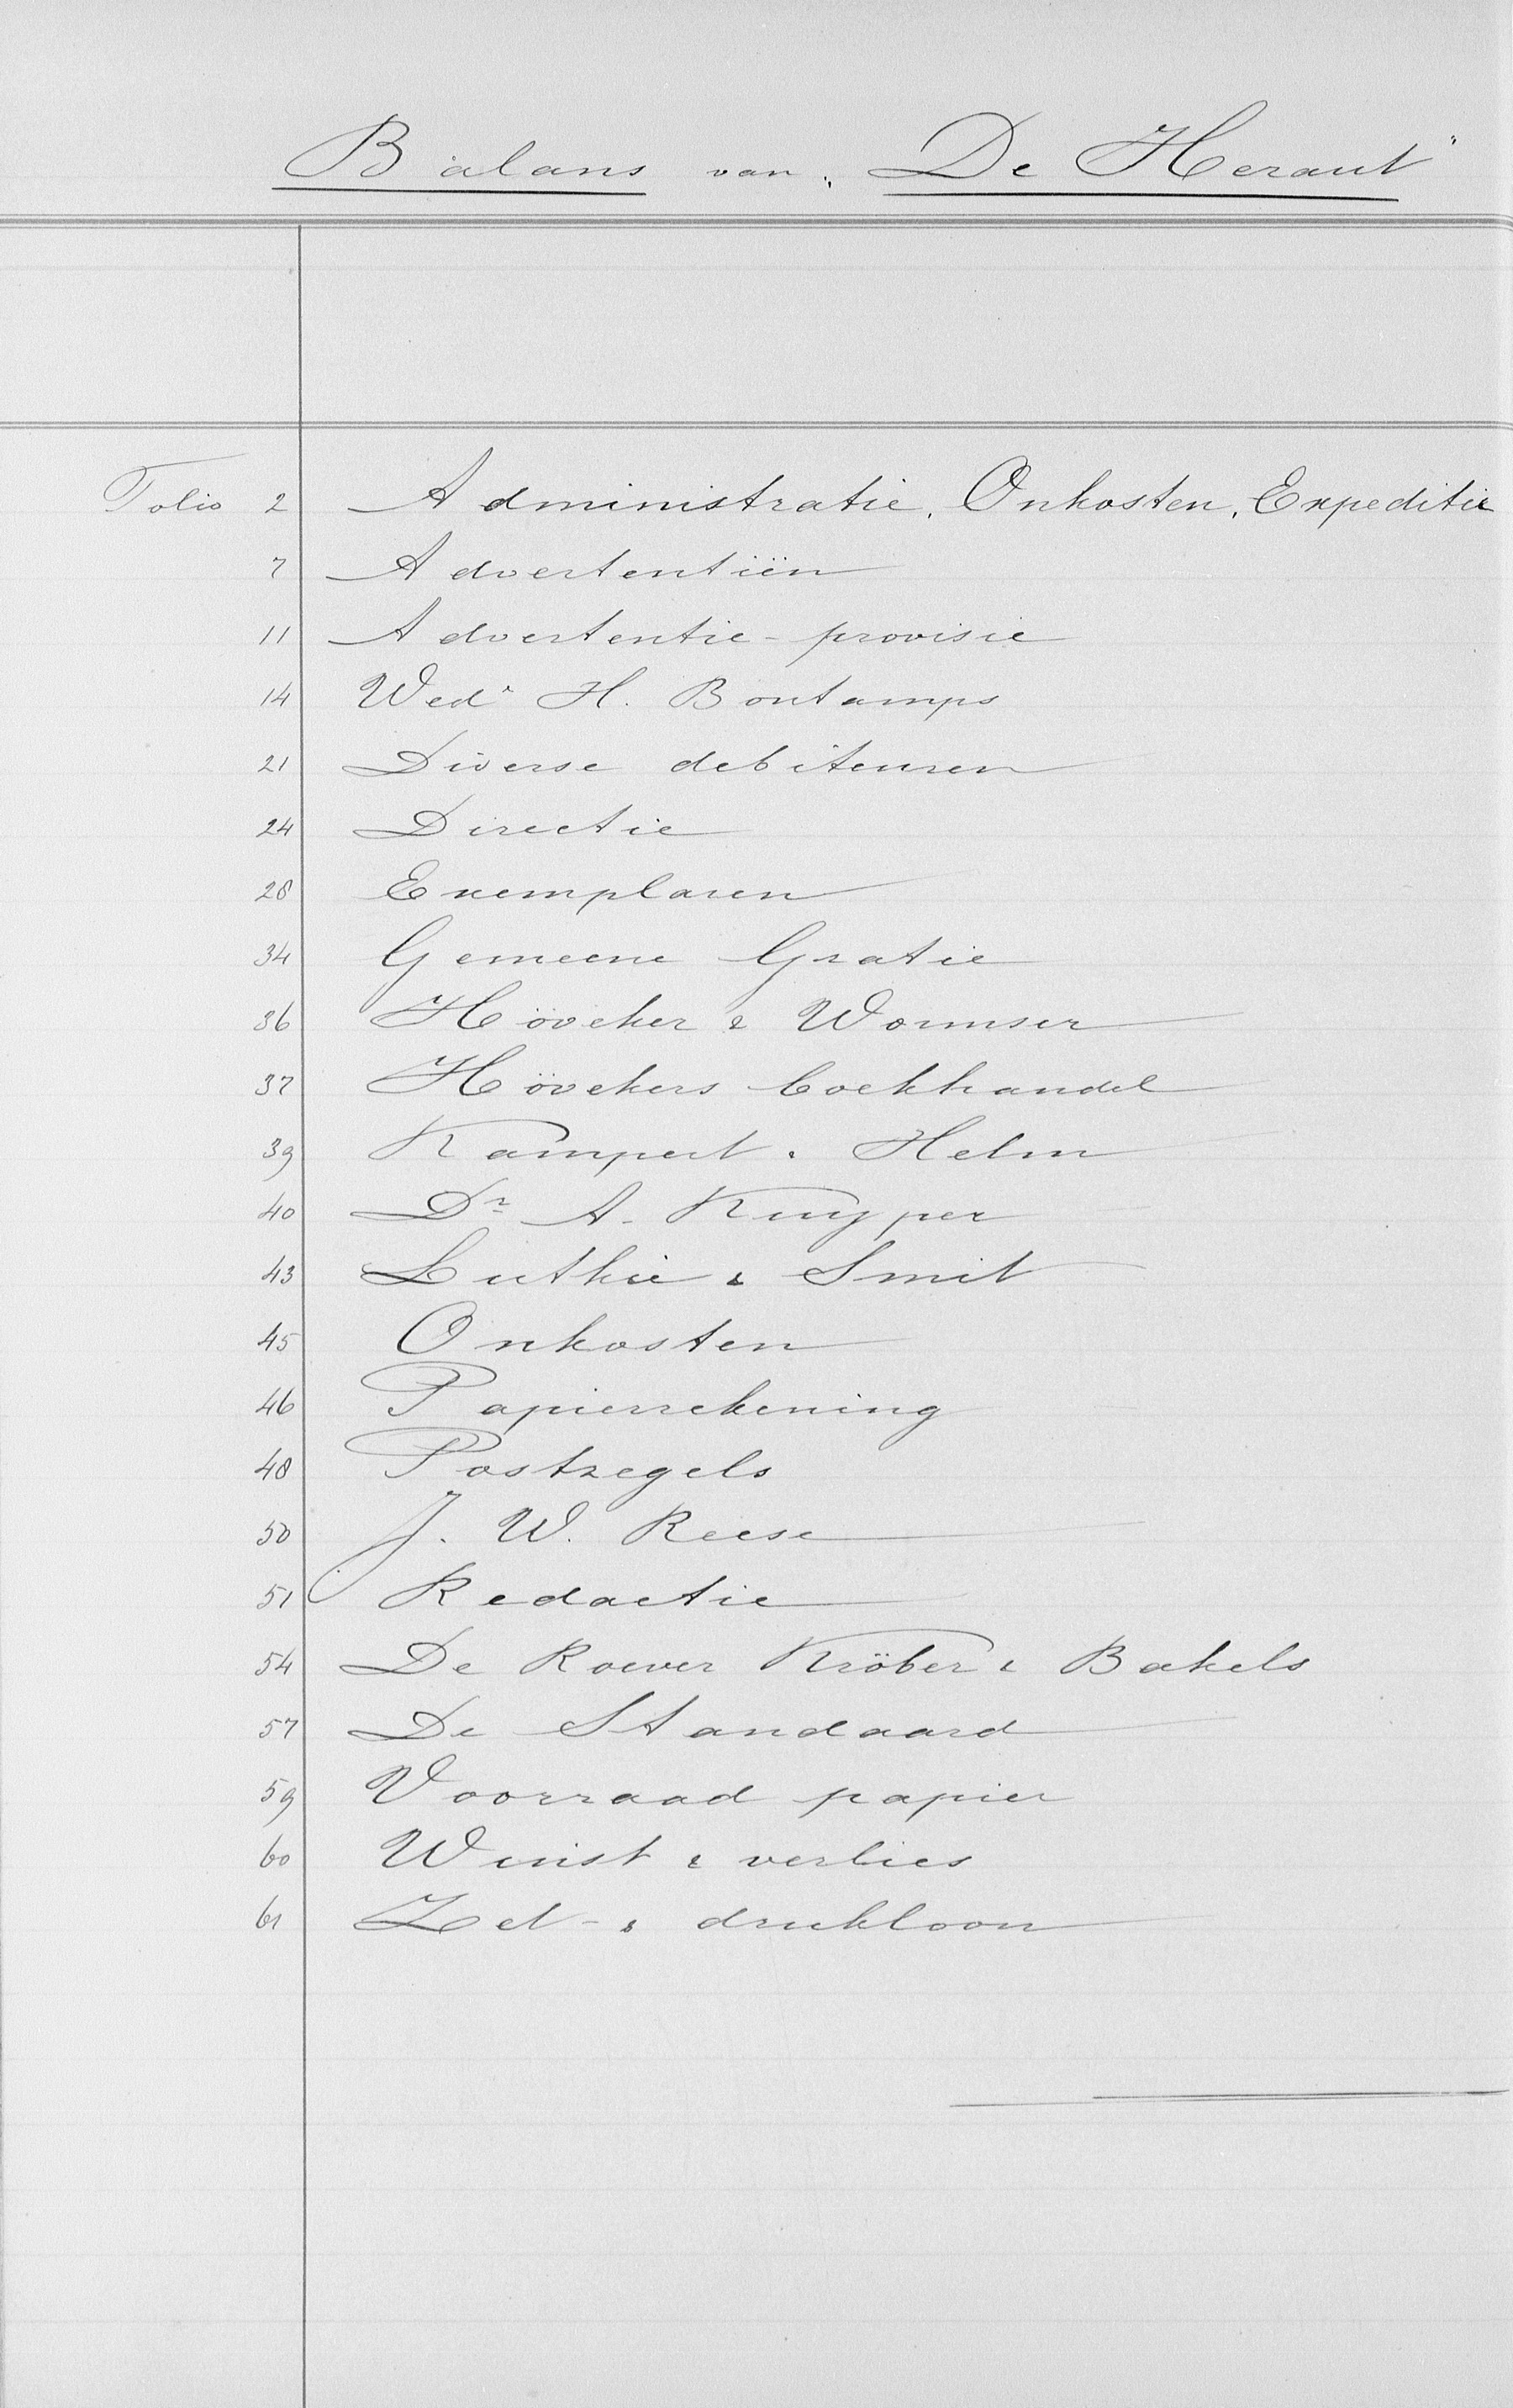 Balans van „De Heraut"
Folio 2 Administratie. Onkosten. Expeditie
7 Advertentiën
11 Advertentie-provisie
14 Wede H. Bontamps
21 Diverse debiteuren
24 Directie
28 Exemplaren
34 Gemeene Gratie
36 Höveker & Wormser
37 Hövekers boekhandel
39 Kampert & Helm
40 Dr A. Kuyper
43 Luthie & Smit
45 Onkosten
46 Papierrekening
48 Postzegels
50 J. W. Reese
51 Redactie
54 De Roever Kröber & Bakels
57 De Standaard
59 Voorraad papier
60 Winst & verlies
61 Zet- & drukloon